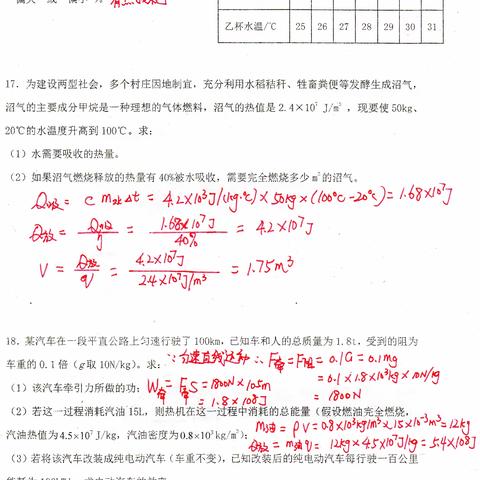 乙杯水温/℃ 25 26 27 28 29 30 31
17. 为建设两型社会，多个村庄因地制宜，充分利用水稻秸秆、牲畜粪便等发酵生成沼气，
沼气的主要成分甲烷是一种理想的气体燃料，沼气的热值是 2.4×10⁷ J/m³，现要使 50kg、
20℃的水温度升高到 100℃。求：
（1）水需要吸收的热量。
（2）如果沼气燃烧释放的热量有 40%被水吸收，需要完全燃烧多少 m³的沼气。
Q吸 = C m水 Δt = 4.2×10³J/(kg·℃)×50kg×(100℃-20℃) = 1.68×10⁷J
Q放 = Q吸/η = 1.68×10⁷J/40% = 4.2×10⁷J
V = Q放/q = 4.2×10⁷J/2.4×10⁷J/m³ = 1.75m³
18. 某汽车在一段平直公路上匀速行驶了 100km，已知车和人的总质量为 1.8t，受到的阻为
车重的 0.1 倍（g 取 10N/kg）。求： ∵匀速直线运动 ∴ F牵=F阻=0.1G=0.1mg
=0.1×1.8×10³kg×10N/kg
（1）该汽车牵引力所做的功； W牵=F牵S=1800N×10⁵m =1800N
=1.8×10⁸J
（2）若这一过程消耗汽油 15L，则热机在这一过程中消耗的总能量（假设燃油完全燃烧，
汽油热值为4.5×10⁷J/kg，汽油密度为0.8×10³kg/m³）； m油=ρV=0.8×10³kg/m³×15×10⁻³m³=12kg
Q放=m油q=12kg×4.5×10⁷J/kg=5.4×10⁸J
（3）若将该汽车改装成纯电动汽车（车重不变），已知改装后的纯电动汽车每行驶一百公里